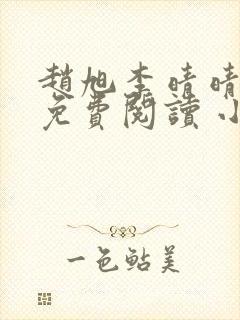 趙旭李晴晴
免費閱讀小
一色鮎美